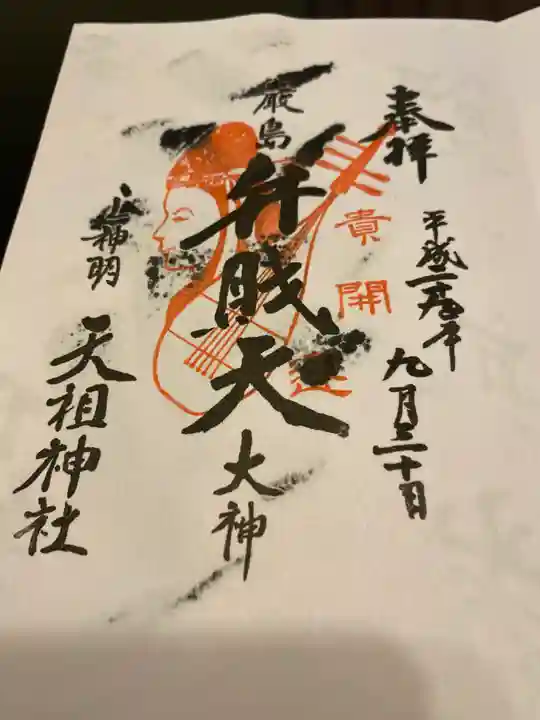 奉拝
平成二十九年
九月三十日
貴
開
運
厳島
弁財天
大神
天祖神社